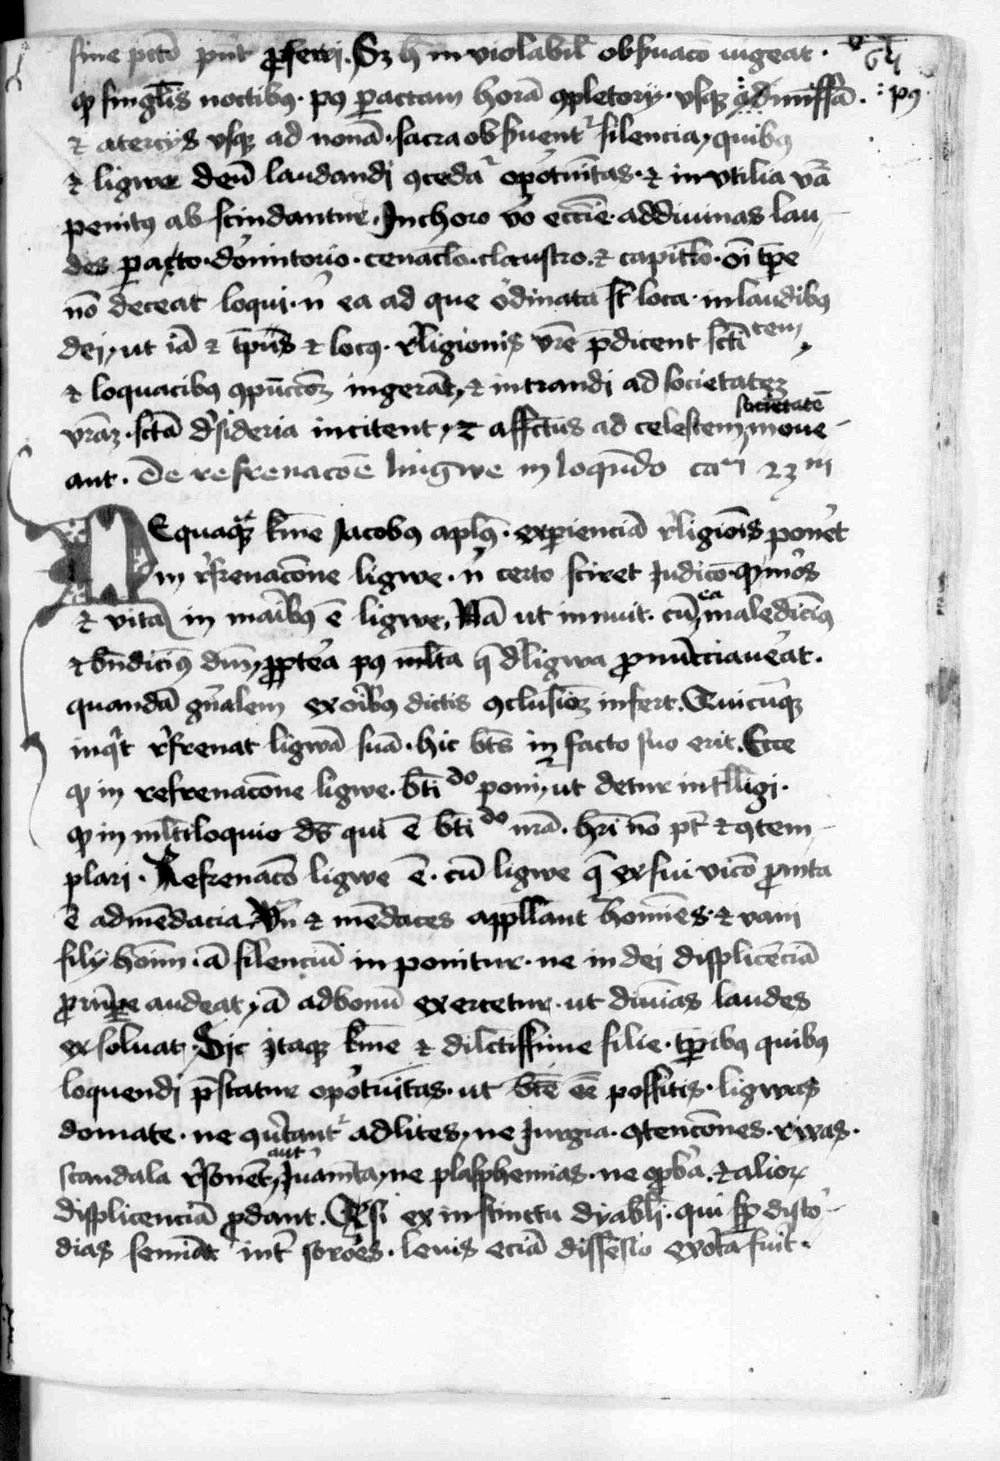 sine pctō pn̄t ꝓferrj. Sꝫ h̄ in violabil̓ obẜuaco̅ uigeat.
ꝙ singl̄is noctibꝰ. pꝰ ꝑactam horā ꝯpletorij. vsqꝫ ꝯdmissā. : pꝰ
⁊ atercijs vsqꝫ ad nonā. sacra obẜuentᷣ silencia, quibꝰ
⁊ ligwe deū laudandj ꝯcedaᷣ opo̓tūitas. ⁊ inutilia v̓ā
penitꝰ ab scindantur. In choro v̓o eccīe. addiuinas lau-
des ꝑacto. do̓mitorio. cenac̄lo. claustro. ⁊ capitl̄o. oī tꝑe
nō deceat loqui. n̓ ea ad que o̓dinata st̄ loca. in laudibꝰ
dej, ut iā ⁊ tp̄us ⁊ locꝰ. r̓ligionis vr̄e p̄dicent sctī tem,
⁊ loquacibꝰ ꝯpūctōꝫ ingerāt, ⁊ intrandi ad societateꝫ
vrāꝫ. sctā d̓sideria incitent, ⁊ affc̄tus ad celestem societatē moue-
ant. De refrenacōe lingwe in loqn̄do caᵐ 23ᵐ
NEquaqᷓꝫ km̄e Jacobꝰ aplꝰ. exꝑienciā r̓ligiōis pon̓et
in r̓frenacōne ligwe. n̓ certo sciret Judico̅. ꝙ mo̓s
⁊ vita in maībꝰ ē ligwe, Nā ut innuit. cū ea maledicīꝰ
⁊ bn̄dicīꝰ dn̄m, ꝓpt̓ea pꝰ ml̄ta q̄ d̓ligwa ꝓnūcciau̓eat.
quandā gn̄alem ex oībꝰ dictis ꝯclusiōꝫ infert. Quicūqꝫ
inqͥt r̓frenat ligwā suā. hic bt̄s in facto suo erit. Ecce
ꝙ in refrenacōne ligwe. bt̄iᵈᵒ poniᷣ, ut detur intllīgi.
ꝙ in ml̄tiloquio ds̄ qui ē bt̄iᵈᵒ nrā. hr̄i nō pt̄ ⁊ ꝯtem-
plari. Refrenacō ligwe ē. cū ligwe q̄ ex sui vico̅ ꝓmta
ē admēdacia. Vn̄ ⁊ mēdaces appll̄antᷣ homīes. ⁊ vani
filij hoīm. ā silenciū inponitur. ne in dej displicēciā
ꝓrūpe audeat, ā adbonū exercetur. ut diuīas laudes
exsoluat. Sic jtaqꝫ km̄e ⁊ dilctissime filie. tꝑibꝰ quibꝰ
loquendj p̄statur opo̓tūitas. ut bt̄e ēē possitis. ligwas
domate. ne qu̓tantᷣ adlites, ne Jurgia. ꝯtencōnes. rixas.
scandala r̓sonēt, aut Juamta, ne plasphemias. ne opb̓a. ⁊ alioꝝ
displicenciā ꝓdant. Qꝫ si ex instinctu dyabl̄i. qui sp̄ disco̓-
dias semīat int̓ soro̓es. leuis eciā dissēsio exo̓ta fuit.